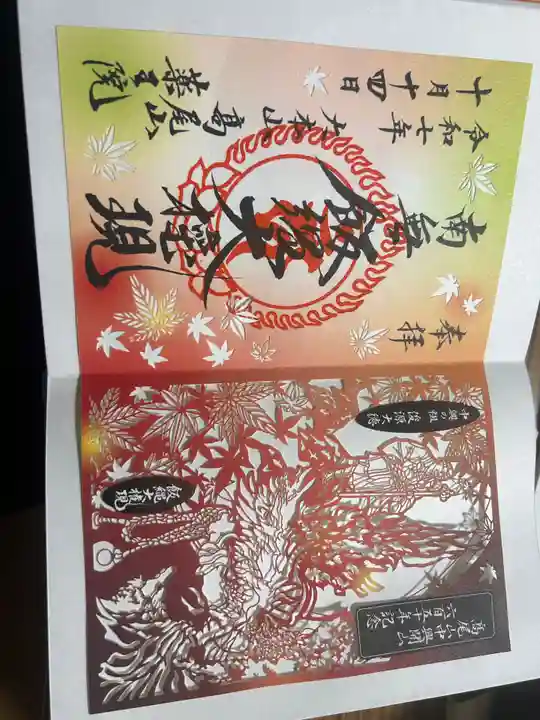 奉拝
南無飯縄大権現
令和七年
十月十四日
大本山高尾山
薬王院
高尾山中興開山
六百五十年記念
中興の祖 俊源大徳
飯縄大権現